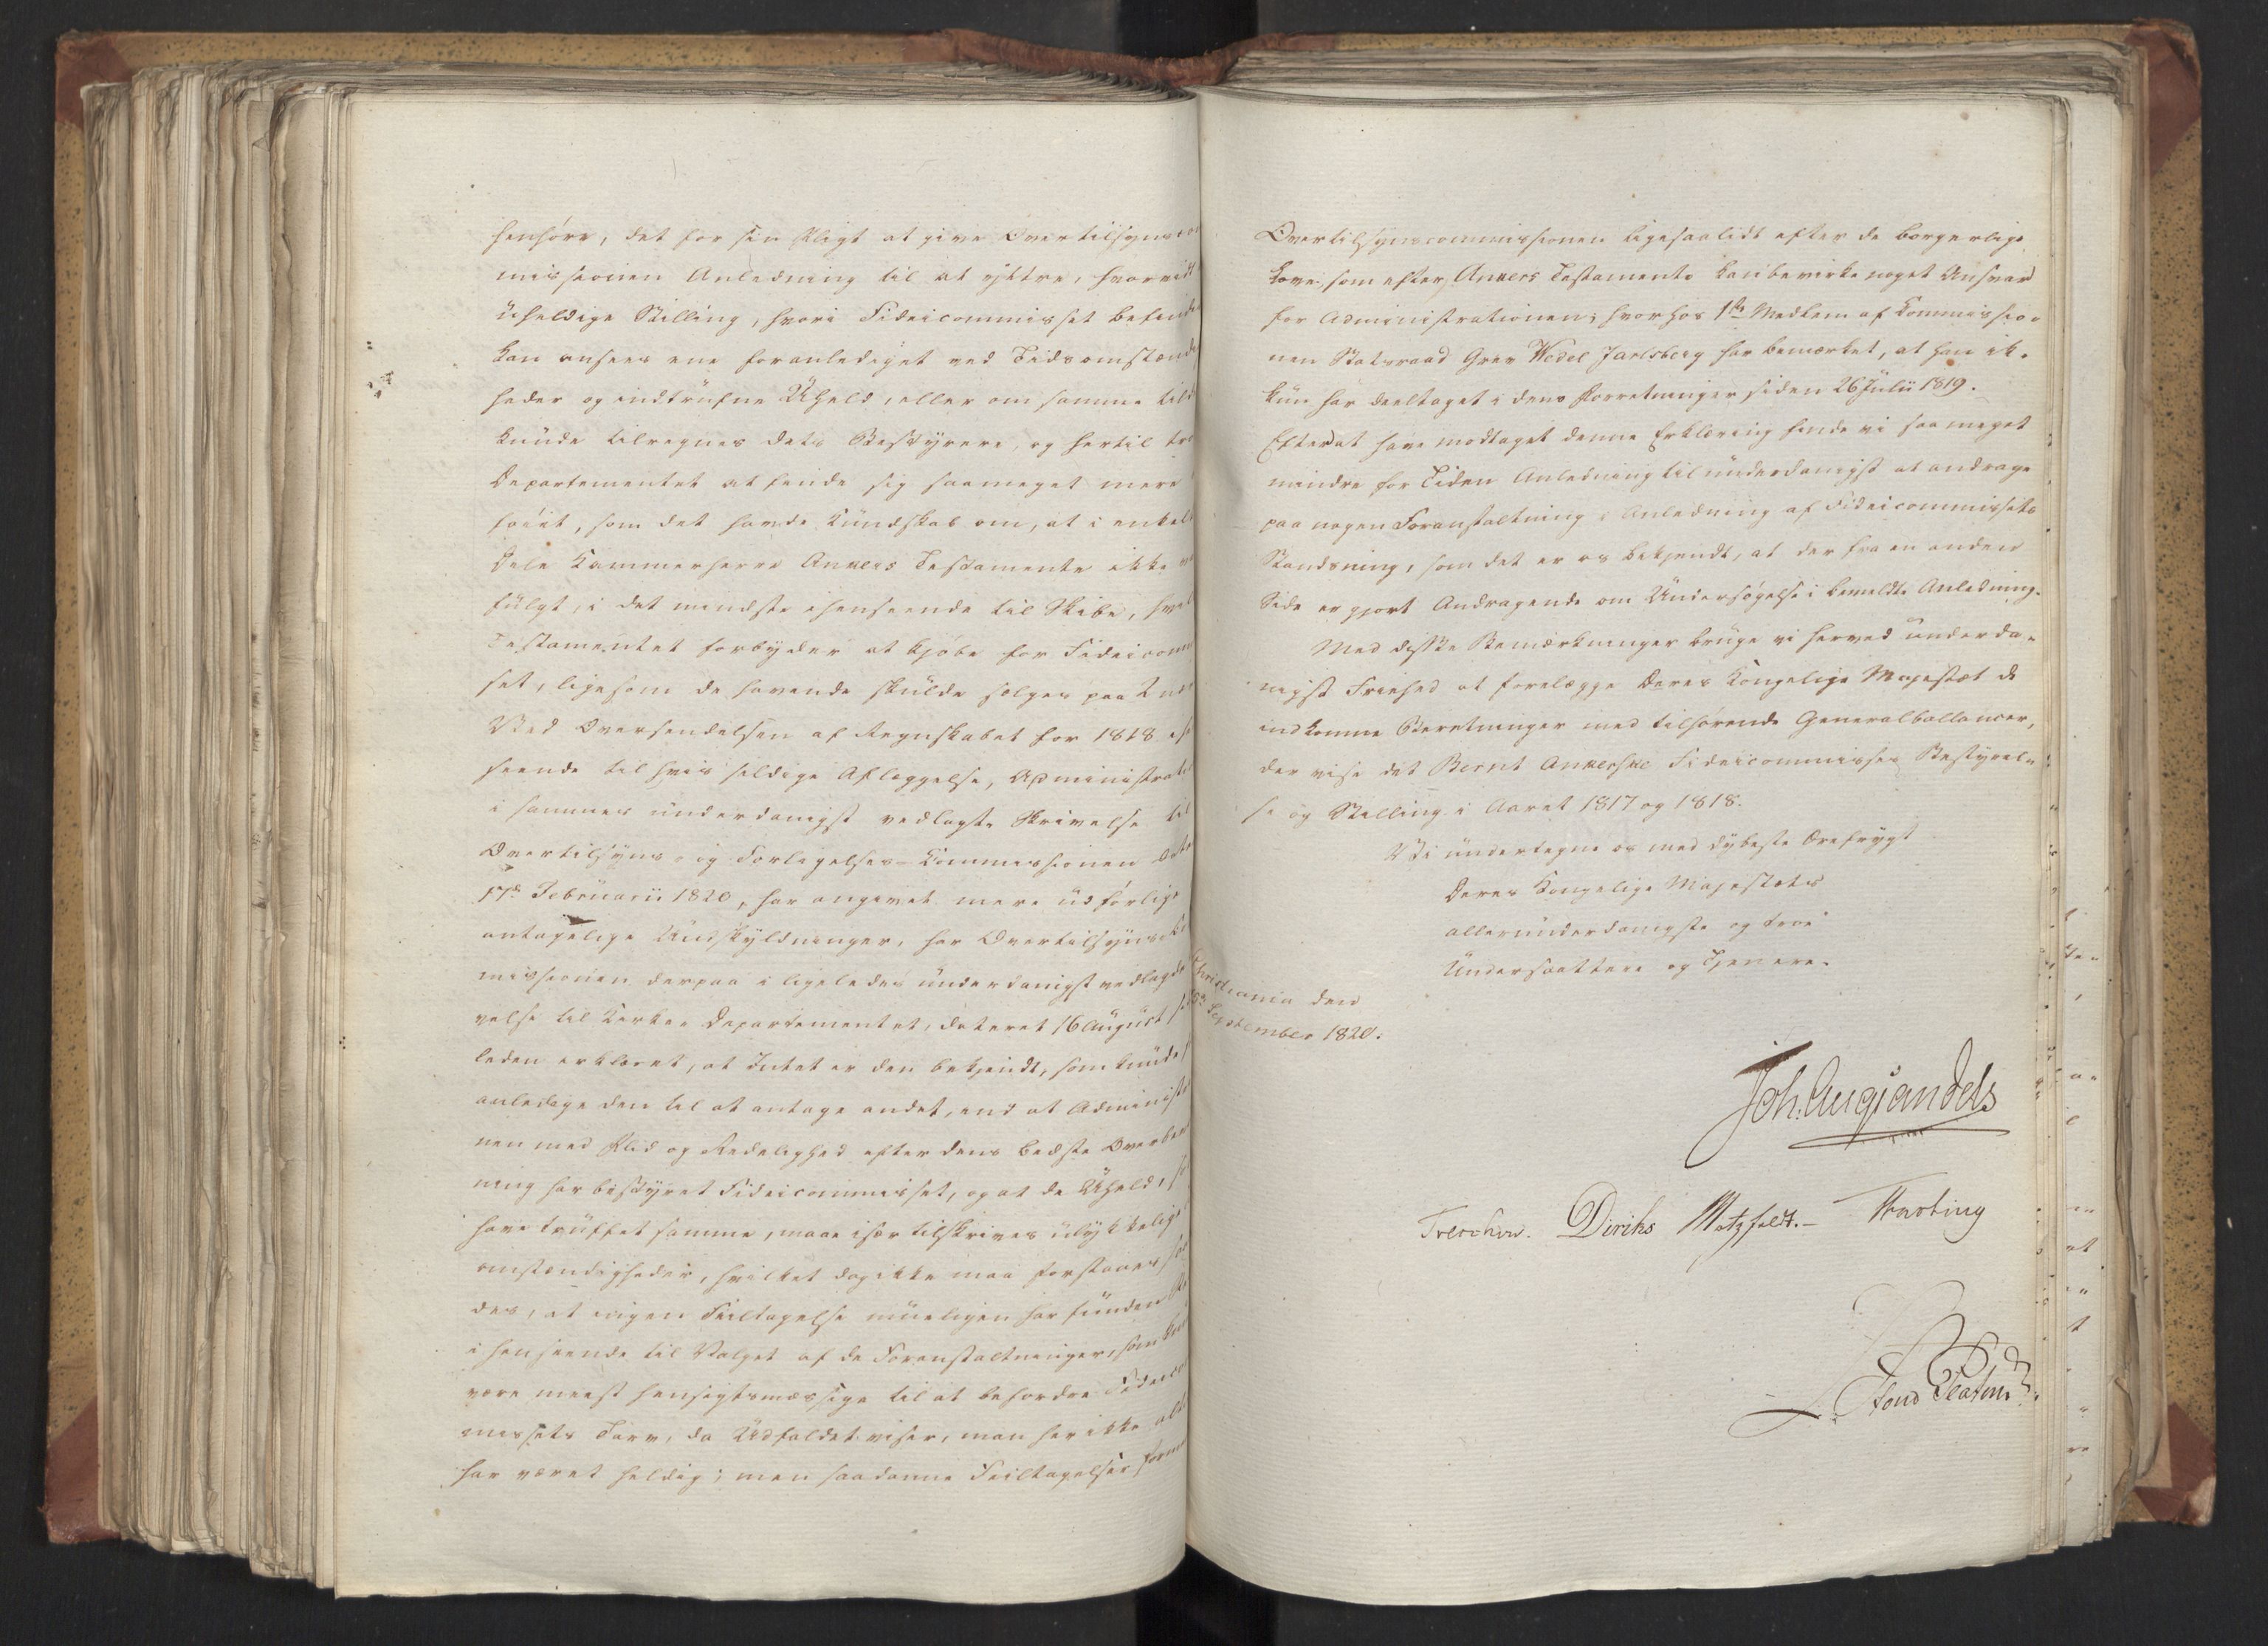 henhøre, det for sin Pligt at give Overtilsynsco
missionen Anledning til at yttre, hvorvidt
uheldige Stilling, hvori Fideicommisset befind
kan ansees ene foranlediget ved Tidsomstænd
heder og indtrufne Uheld, eller om samme tild
kunde tilregnes dets Bestyrere, og hertil tro
Departementet at finde sig saameget mere
føiet, som det havde Kundskab om, at i enkel
Dele Kammerherre Ankers Testamente ikke
fulgt, i det mindste i henseende til Skibe, hvil
Testamentet forbyder at kjøbe for Fideicom
set, ligesom de havende skulde sælges paa
Ved Oversendelsen af Regnskabet for 1818
seende til hvis sildige Aflæggelse, Administrati
i sammes underdanigst vedlagte Skrivelse til
Overtilsyns- og Forligelses-Commissionen dat
17de Februarii 1820, har angivet mere udførlige
antagelige Undskyldninger, har Overtilsyns
missionen derpaa i ligeledes underdanigst vedlagde
velse til Kirke-Departementet, dateret 16 August
leden erklæret, at Intet er den bekjendt, som kunde
anledige den til at antage andet, end at Administ
nen med Flid og Redelighed efter dens bedste Overbe
ning har bestyret Fideicommisset, og at de Uheld,
have truffet samme, maae især tilskrives ulykkelige
omstændigheder, hvilket dog ikke maa forstaaes saa
des, at ingen Feiltagelse mueligen har funden
i henseende til Valget af de Foranstaltninger, som
være meest hensigtsmæssige til at befordre Fideico
missets Tarv, da Udfaldet viser, man her ikke
har været heldig; men saadanne Feiltagelser
Overtilsynscommissionen ligesaalidt efter de borgerlige
Love, som efter Ankers Testamente kan bevirke noget Ansvar
for Administrationen; hvorhos 1ste Medlem af Commissio-
nen Statsraad Grev Wedel Jarlsberg har bemærket, at han ik-
kun har deeltaget i dens Forretninger siden 26 Julii 1819.
Efter at have modtaget denne Erklæring finde vi saa meget
mindre for Tiden Anledning til underdanigst at andrage
paa nogen Foranstaltning i Anledning af Fideicommissets
Standsning, som det er os bekjendt, at der fra en anden
Side er gjort Andragende om Undersøgelse i bemeldte Anledning.
Med disse Bemærkninger bruge vi herved underda-
nigst Friehed at forelægge Deres Kongelige Majestæt de
indkomne Beretninger med tilhørende Generalballancer,
der vise det Bernt Ankerske Fideicommisses Bestyrel-
se og Stilling i Aaret 1817 og 1818.
Vi undertegne os med dybeste Ærefrygt
Deres Kongelige Majestæts
allerunderdanigste og troe
Undersaattere og Tjenere.
Christiania den
September 1820.
Joh. Aug Sandels
Treschow. Diriks Motzfeldt.- Harting